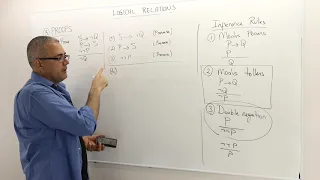 LOGICAL RELATIONS
① PROOFS
S → ¬Q
P → S
¬¬P
¬Q
1) S → ¬Q (Premise)
2) P → S (Premise)
3) ¬¬P (Premise)
4)
Inference Rules
① Modus Ponens
P → Q
P
Q
② Modus tollens
P → Q
¬Q
¬P
③ Double negation
P
¬¬P
¬¬P
P